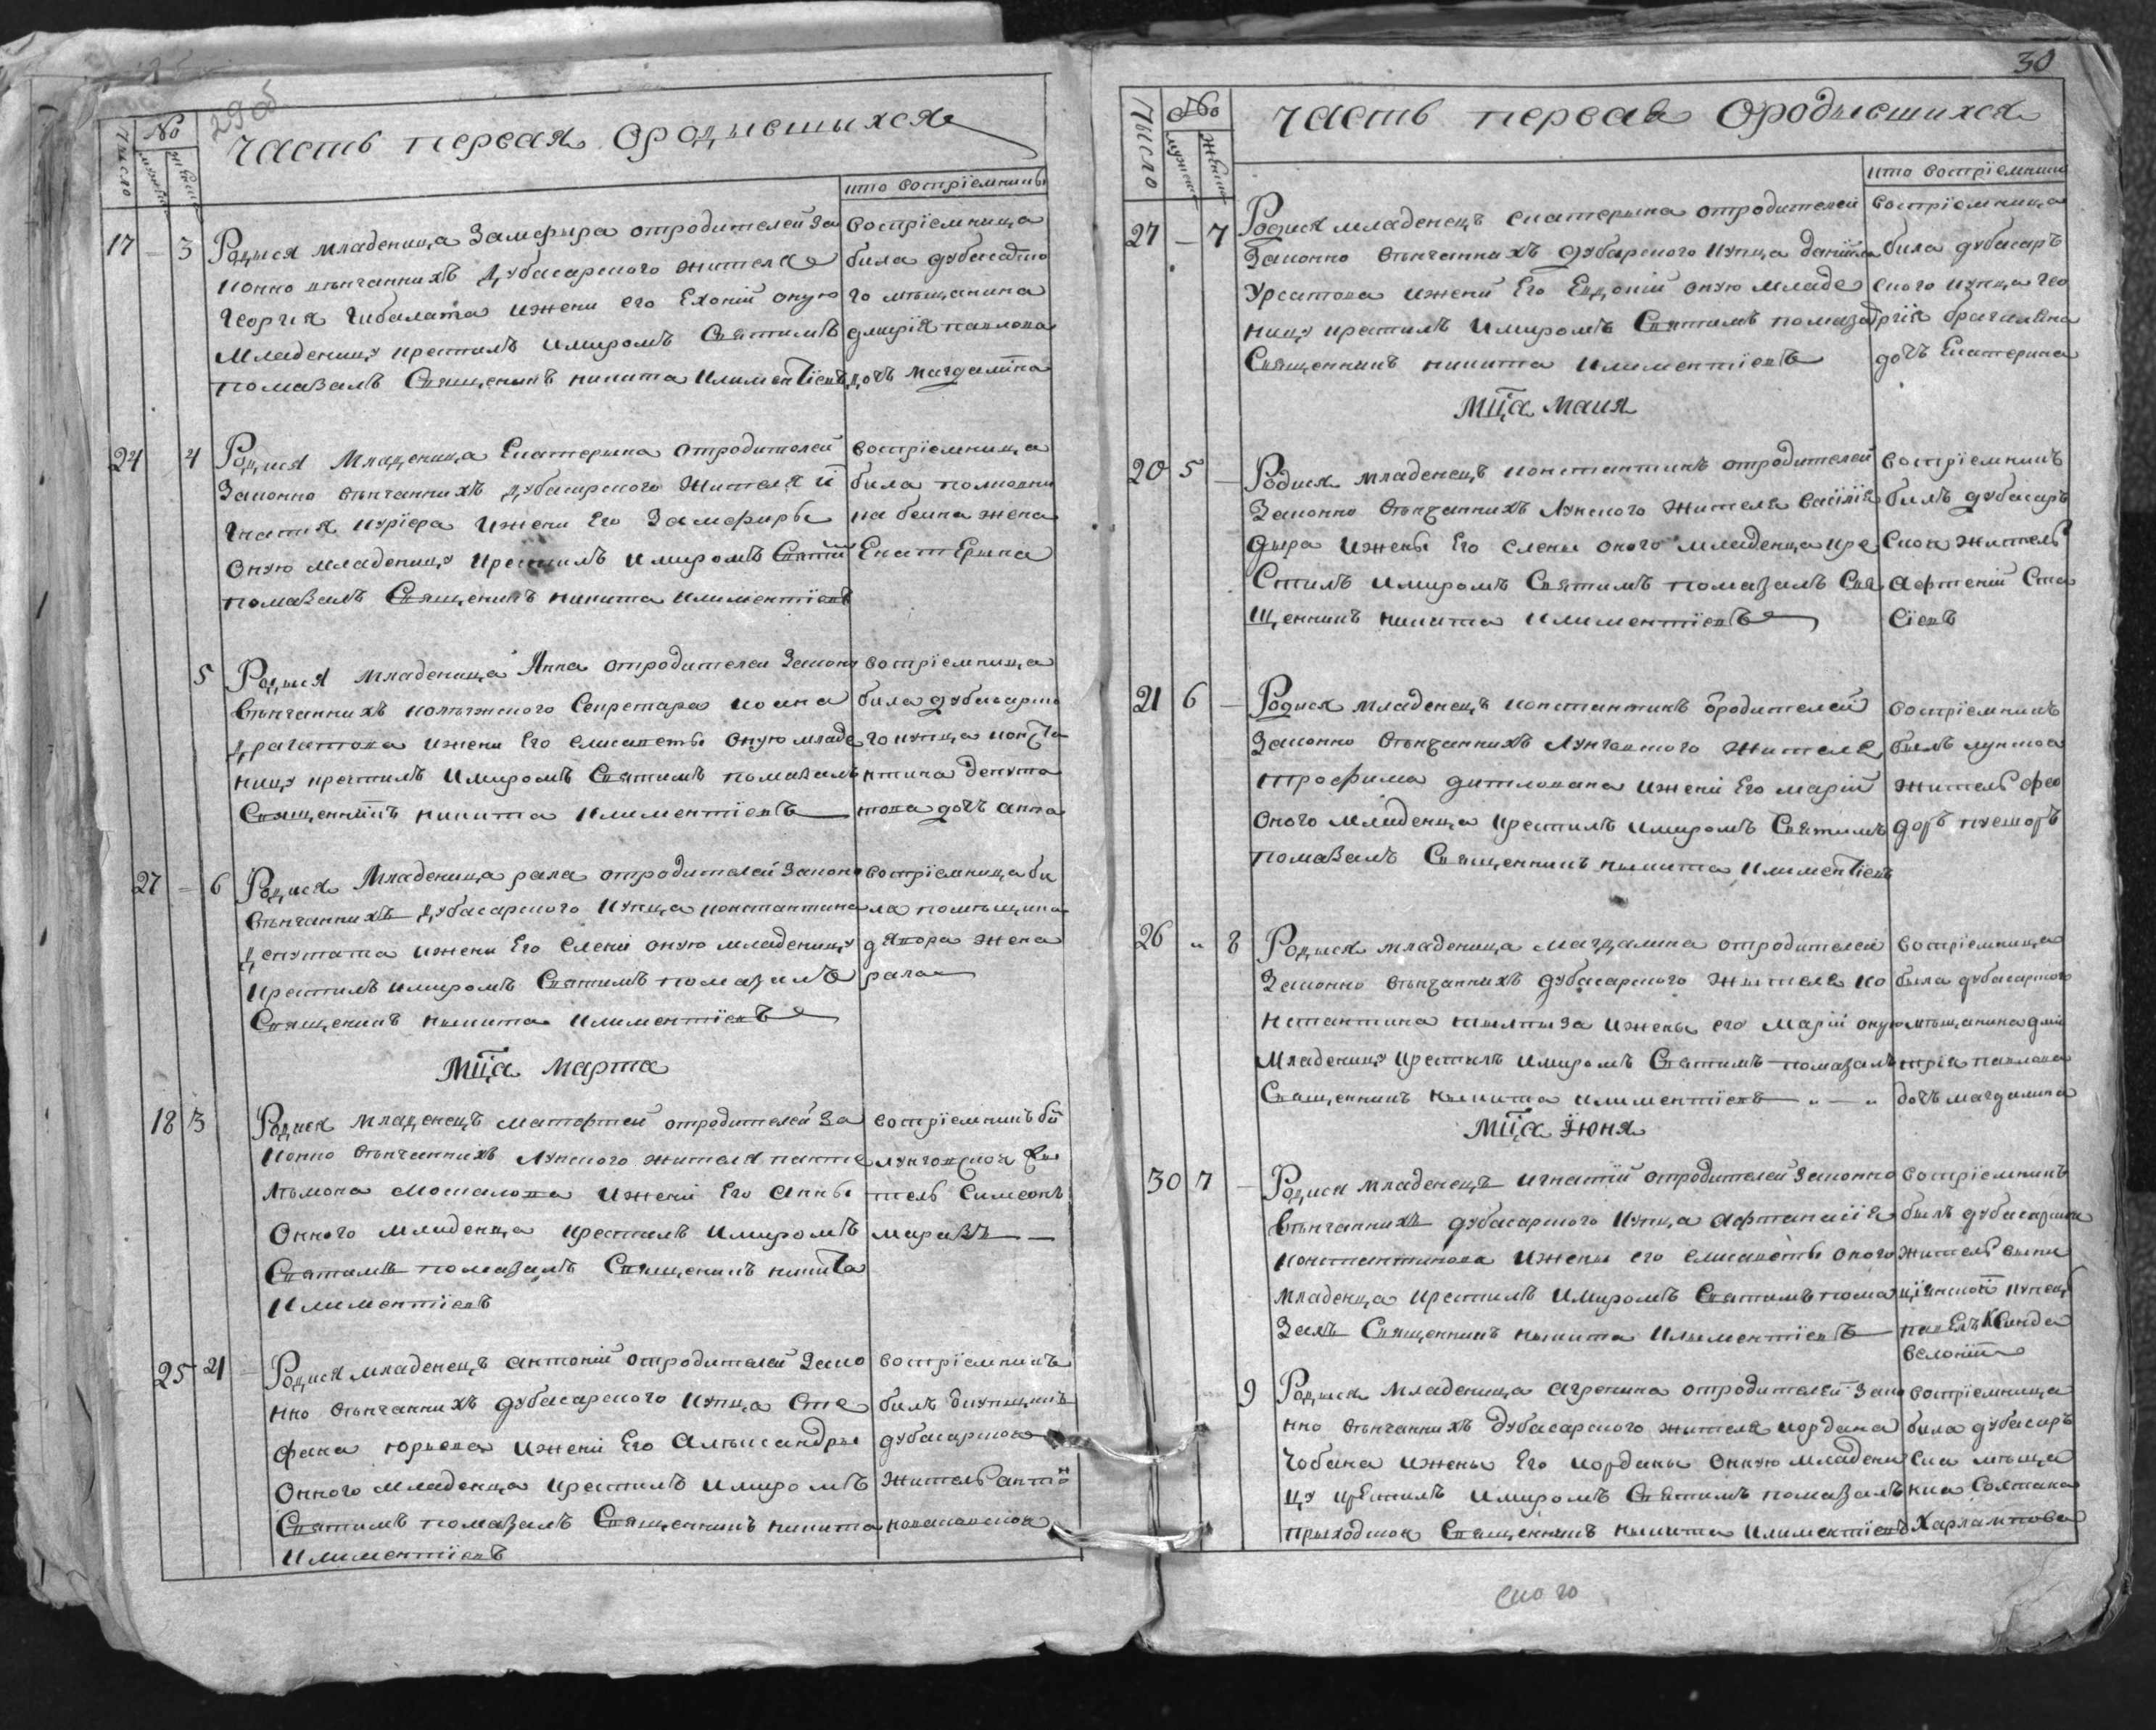 29об
No
число
мужеск
женск
часть первая ородившыхся
кто востріемникъ
17 - 3 Родися младеница Замфира отродителей За
конно вѣнчаннихъ дубасарского жителя
Георгия Чибалата ижени его Ехоніи оную
Младеницу крестилъ имиромъ Святимъ
помазалъ Священикъ никита Климентіевъ
востріемница
била дубасарско
го мѣщанина
дмирія павлова
дочъ Магдалина
24 4 Родися Младеница Екатерина отродителей
Законно вѣнчаннихъ дубасарского Жителя
Игнатия курїера ижени Его Замфиры
оную младеницу крестилъ имиромъ Святим
помазалъ Священикъ никита Климентіевъ
востріемница
била полковни
жена
Екатерина
5 Родися Младеница Анна отродителей Законо
вѣнчаннихъ Секретара иоана
Драгатова ижени Его елисаветы Оную младе
ницу крестилъ имиромъ Святимъ помазалъ
Священникъ никита Климентіевъ
востріемница
била дубасарско
го купца конста
нтина депута
това дочъ анна
27 - 6 Родися Младеница рала отродителей Законо
вѣнчаннихъ дубасарского купца константина
Депутата ижени Его Елени оную младеницу
крестилъ имиромъ Святимъ помазалъ
Священикъ никита Климентіевъ
востріемница би
ла помѣщика
жена
рала
Мца Марта
18 3 Родися младенецъ матфтей отродителей За
конно вѣнчаннихъ лункого жителя панте
лѣмона мокалова ижени Его анны
Онного младенца крестилъ имиромъ
Святимъ помазалъ Священикъ никита
Климентіевъ
востріемникъ би
лунговской жи
тель Симеонъ
25 4 Родися младенецъ антоній отродителей Зако
нно вѣнчаннихъ дубасарского купца Сте
фана юрьева ижени Его Алѣксандры
Онного младенца крестилъ имиромъ
Святимъ помазалъ Священникъ никита
Климентіевъ
востріемникъ
билъ
дубасарской
житель антон
30
No
число
мужеск
женск
часть первая ородывшихся
кто востріемникъ
27 - 7 Родися младенецъ екатерина отродителей
Законно вѣнчаннихъ дубасарского купца данїила
Урсатова ижени Его Евдокіи оную младе
ницу крестилъ имиромъ Святимъ помаза
Священникъ никита Климентіевъ
востріемница
била дубасаръ
ского купца гео
ргія
дочъ Екатерина
Мца маия
20 5 - Родися младенецъ константинъ отродителей
Законно вѣнчаннихъ лунского жителя василїя
дыра ижены Его елены оного младенца кре
Стилъ имиромъ Святимъ помазалъ Свя
щенникъ никита Климентіевъ
востріемникъ
билъ дубасаръ
ской житель
Афтеній Ста
сїевъ
21 6 - Родися младенецъ константинъ ородителей
Законно вѣнчаннихъ лунговского жителя
трофима дитлована ижени Его маріи
оного младенца крестилъ имиромъ Святимъ
помазалъ Священникъ никита Климентіевъ
востріемникъ
былъ лунгков
житель фео
доръ
26 " 8 Родися младеница магдалина отродителей
Законно вѣнчаннихъ дубасарского жытеля ко
нстантина ижены его маріи оную
Младеницу крестилъ имиромъ Святимъ помазалъ
Священникъ никита Климентіевъ
востріемница
была дубасарского
мѣщанина дми
трія павлова
дочъ магдалина
Мца іюня
30 7 - Родися младенецъ игнатій отродителей Законно
вѣнчаннихъ дубасарского купца афтанасія
константинова ижены его елисаветы оного
младенца крестилъ имиромъ Святимъ пома
залъ Священникъ никита Климентіевъ
востріемникъ
билъ дубасарски
житель
купецъ
9 Родися младеница агрепина отродителей Зако
нно вѣнчаннихъ дубасарского жителя иордана
Чобана ижены Его иорданы онную младени
цу крестилъ имиромъ Святимъ помазалъ
прыходской Священникъ никита Климентіевъ
востріемница
била дубасаръ
ска мѣща
нка Солтана
Харлампова
ского